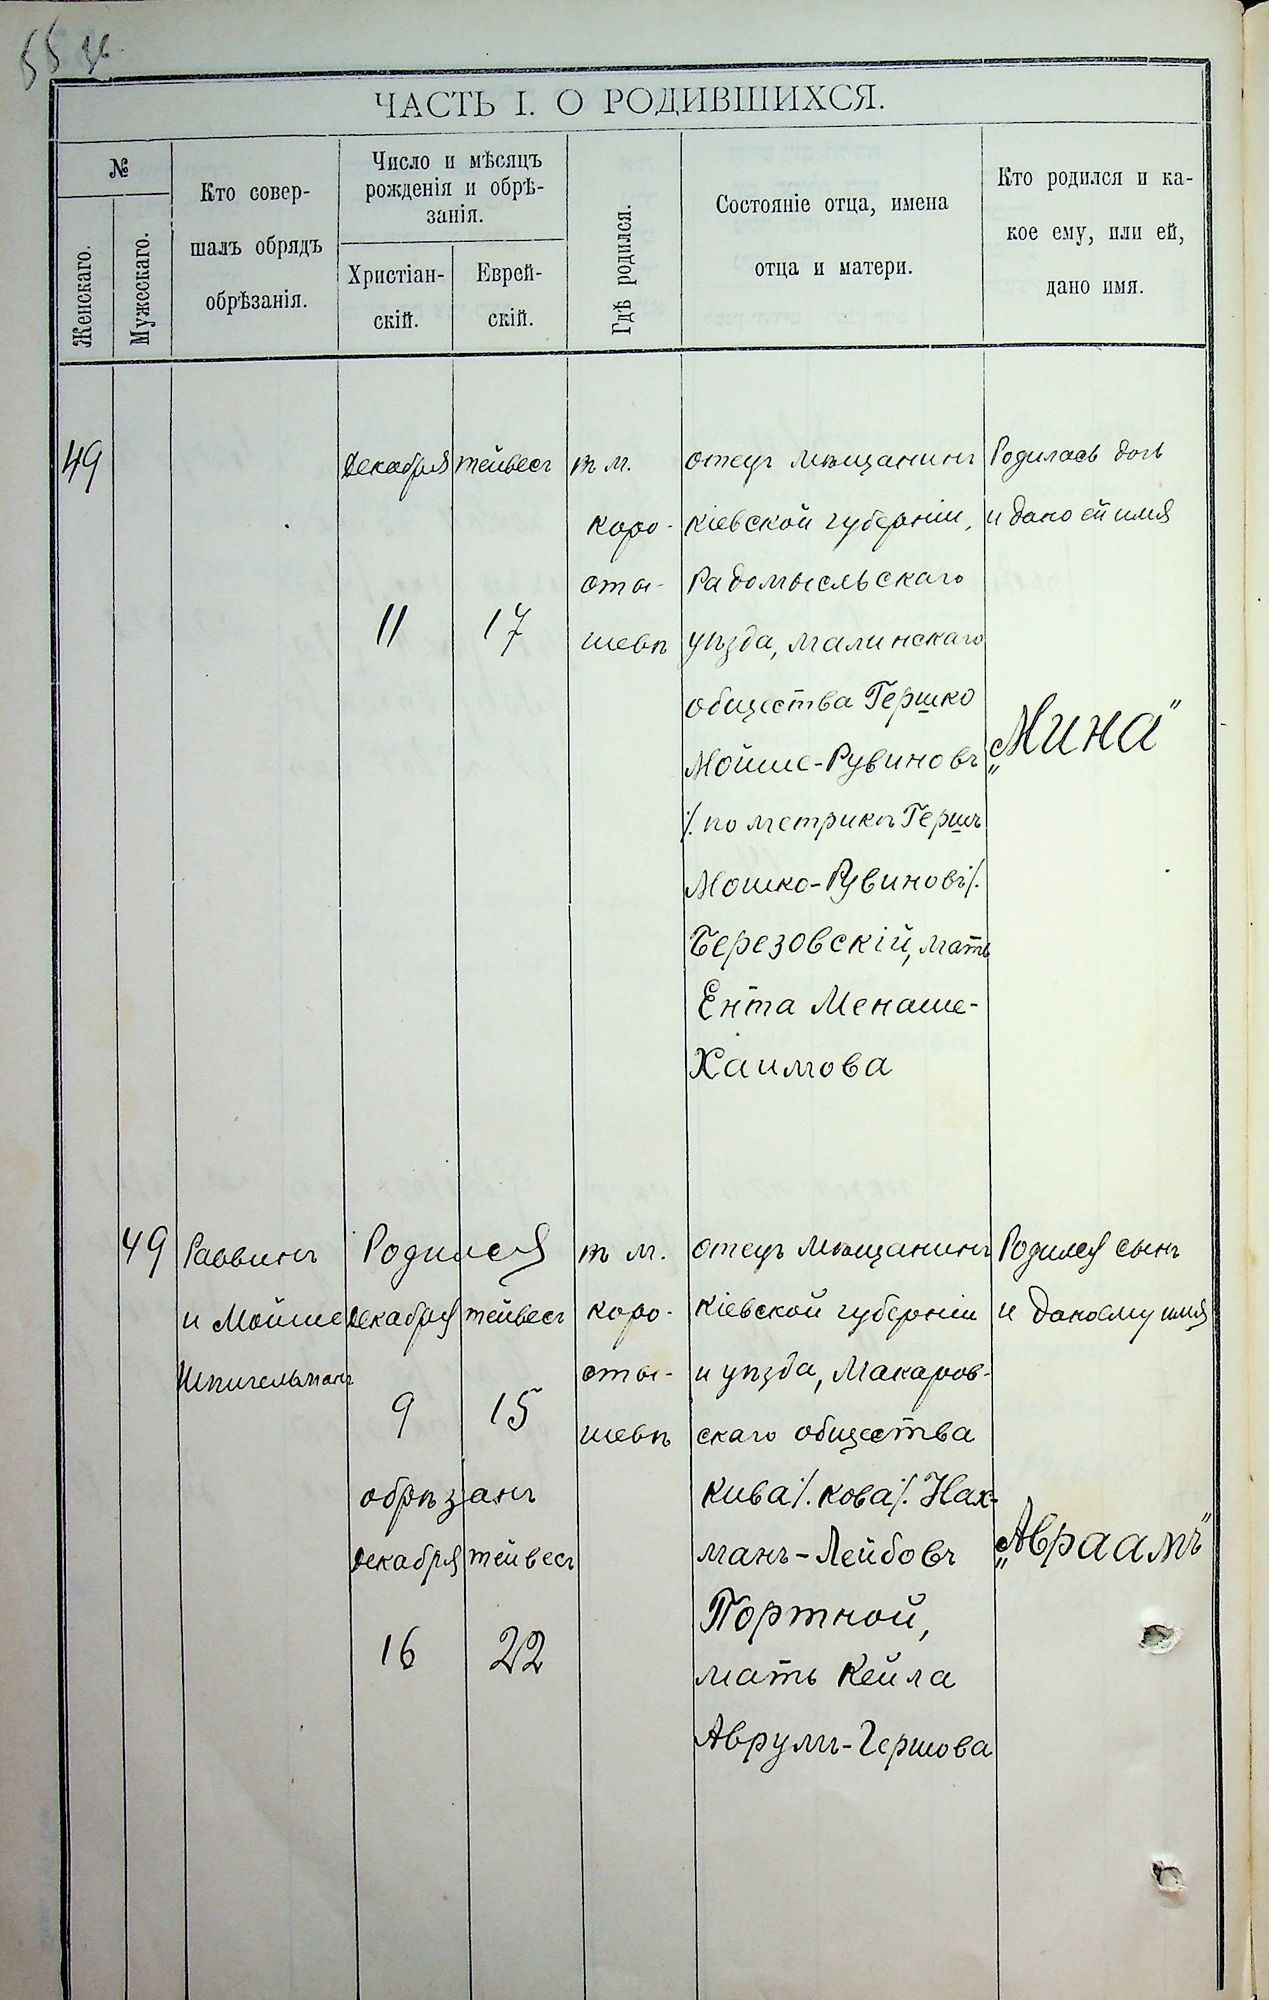 ЧАСТЬ I. О РОДИВШИХСЯ.
№
Женскаго.
Мужескаго.
Кто совер-
шалъ обрядъ
обрѣзанія.
Число и мѣсяцъ
рожденія и обрѣ-
занія.
Христіан-
скій.
Еврей-
скій.
Гдѣ родился.
Состояніе отца, имена
отца и матери.
Кто родился и ка-
кое ему, или ей,
дано имя.
49
Декабря
11
тейвесъ
17
м.
Коро-
сты-
шевѣ
отецъ мѣщанинъ
Кіевской губерніи,
Радомысльскаго
уѣзда, Малинскаго
общества Гершко
Мойше-Рувиновъ
/. по метрикѣ Гершъ
Мошко-Рувиновъ/.
Березовскій, мать
Ента Менаше-
Хаимова
Родилась дочь
и дано ей имя
„Мина"
49
Раввинъ
и Мойше
Шпигельманъ
Родился
Декабря тейвесъ
9 15
обрѣзанъ
декабря тейвесъ
16 22
м.
Коро-
сты-
шевѣ
отецъ мѣщанинъ
Кіевской губерніи
и уѣзда, Макаров-
скаго общества
Кива/. Кова/. Нах-
манъ-Лейбовъ
Портной,
мать Кейла
Аврумъ-Гершова
Родился сынъ
и дано ему имя
„Авраамъ"